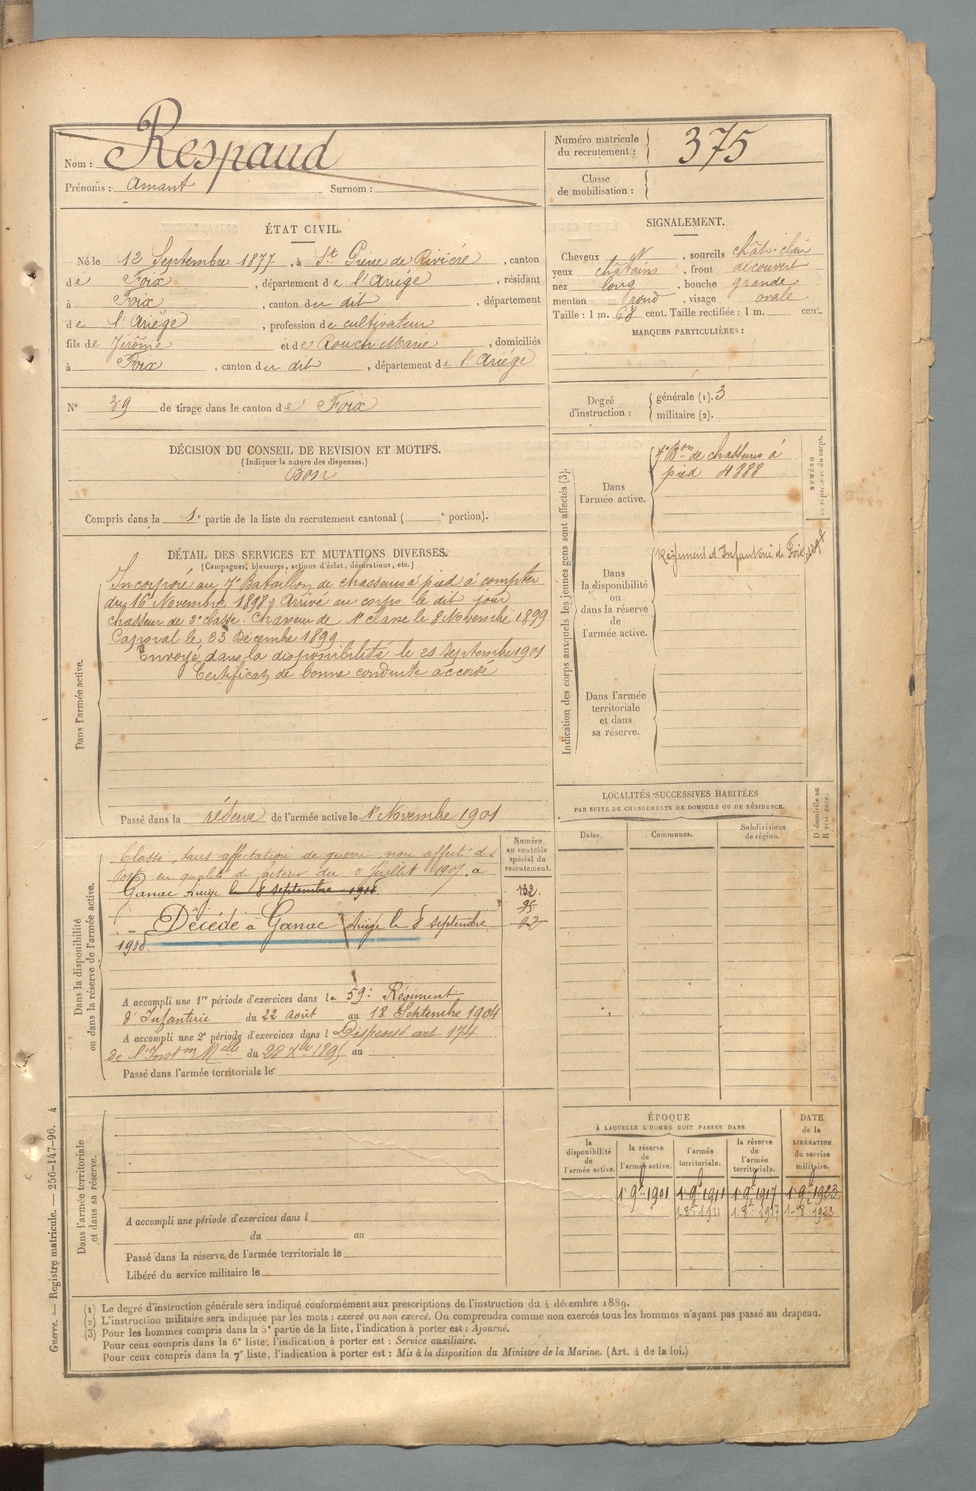 Nom : Respaud
Prénoms : Amant Surnom :
Numéro matricule
du recrutement : 375
Classe
de mobilisation :
ÉTAT CIVIL.
Né le 12 Septembre 1877, à St Pierre de Rivière, canton
de Foix, département de l'Ariège, résidant
à Foix, canton du dit, département
de l'Ariège, profession de cultivateur
fils de Jérôme et de Rouch Marie, domiciliés
à Foix, canton du dit, département de l'Ariège
N° 39 de tirage dans le canton de Foix
SIGNALEMENT.
Cheveux , sourcils chât. clair
yeux chatains, front découvert
nez long, bouche grande
menton rond, visage ovale
Taille : 1 m. 68 cent. Taille rectifiée : 1 m. cent.
MARQUES PARTICULIÈRES :
Degré
d'instruction :
générale (1). 3
militaire (2).
DÉCISION DU CONSEIL DE REVISION ET MOTIFS.
(Indiquer la nature des dispenses.)
Bon
Compris dans la 1e partie de la liste du recrutement cantonal ( e portion).
DÉTAIL DES SERVICES ET MUTATIONS DIVERSES.
(Campagnes, blessures, actions d'éclat, décorations, etc.)
Dans l'armée active.
Incorporé au 7e Bataillon de chasseurs à pied à compter
du 16 Novembre 1898, Arrivé au corps le dit jour
chasseur de 2e classe. Chasseur de 1e classe le 8 Novembre 1899
Caporal le 23 Décembre 1899
Envoyé dans la disponibilité le 21 Septembre 1901
Certificat de bonne conduite accordé
Passé dans la réserve de l'armée active le 1e Novembre 1901
Indication des corps auxquels les jeunes gens sont affectés (3).
NUMÉRO
au répertoire du corps.
Dans
l'armée active.
7e Bon de chasseurs à
pied 4888
Dans
la disponibilité
ou
dans la réserve
de
l'armée active.
Régiment d'Infanterie de Foix
Dans l'armée
territoriale
et dans
sa réserve.
LOCALITÉS SUCCESSIVES HABITÉES
PAR SUITE DE CHANGEMENTS DE DOMICILE OU DE RÉSIDENCE.
Dates.
Communes.
Subdivisions
de région.
D domicile ou
R résidence.
Dans la disponibilité
ou dans la réserve de l'armée active.
Numéro
au contrôle
spécial du
recrutement.
Classé, sans affectation de guerre, non affecté des
Postes en qualité de facteur du 5 juillet 1907 à
Ganac Ariège le 8 septembre
132
95
Décédé à Ganac Ariège le 8 septembre
A accompli une 1re période d'exercices dans le 59e Régiment
d'Infanterie du 22 août au 18 Septembre 1904
A accompli une 2e période d'exercices dans l Dispensé art 174
de l'Inston Melle du 28 Xbre 1895 au
Passé dans l'armée territoriale le
Dans l'armée territoriale
et dans sa réserve.
A accompli une période d'exercices dans l
du au
Passé dans la réserve de l'armée territoriale le
Libéré du service militaire le
ÉPOQUE
À LAQUELLE L'HOMME DOIT PASSER DANS
DATE
de la
LIBÉRATION
du service
militaire.
la
disponibilité
de
l'armée active.
la réserve
de
l'armée active.
l'armée
territoriale.
la réserve
de
l'armée
territoriale.
1 9bre 1901 1 9bre 1911 1 9bre 1917 1 9bre 1923
1 8bre 1911 1 8bre 1917 1 8bre 1923
(1) Le degré d'instruction générale sera indiqué conformément aux prescriptions de l'instruction du 4 décembre 1889.
(2) L'instruction militaire sera indiquée par les mots : exercé ou non exercé. On comprendra comme non exercés tous les hommes n'ayant pas passé au drapeau.
(3) Pour les hommes compris dans la 5e partie de la liste, l'indication à porter est : Ajourné.
Pour ceux compris dans la 6e liste, l'indication à porter est : Service auxiliaire.
Pour ceux compris dans la 7e liste, l'indication à porter est : Mis à la disposition du Ministre de la Marine. (Art. 4 de la loi.)
Guerre. — Registre matricule. — 256-147-96. 4